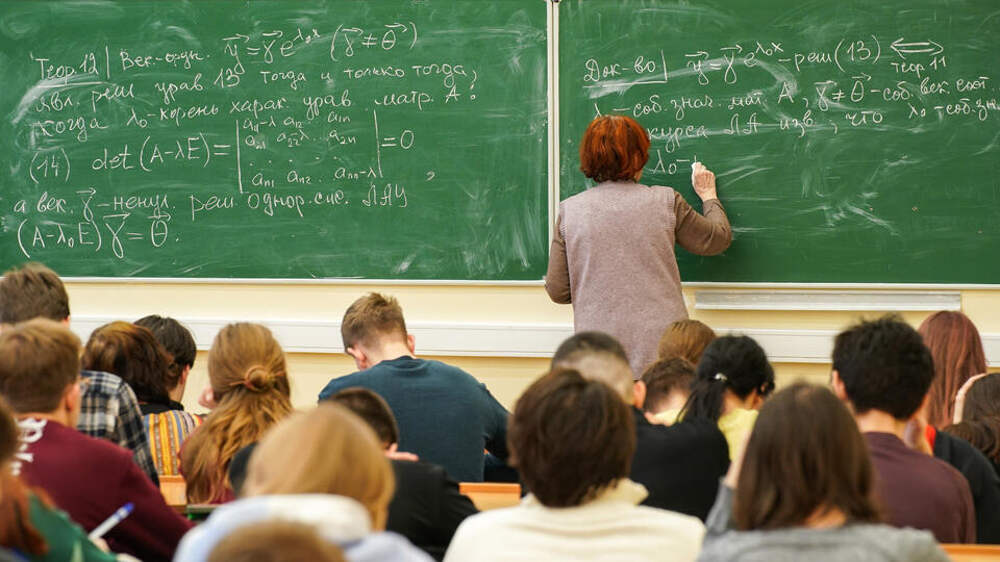 Теор.12 | Век.-функ. y⃗=γ⃗e^{λ₀x} (γ⃗≠θ⃗)
явл. реш урав 13 тогда и только тогда,
когда λ₀-корень харак. урав. матр. A:
(14) det(A-λE)=
a₁₁-λ a₁₂.. a₁ₙ
a₂₁ a₂₂-λ.. a₂ₙ
. . . . . .
aₙ₁ aₙ₂.. aₙₙ-λ
=0,
а век. γ⃗-ненул. реш. однор. сис. ЛАУ
(A-λ₀E)γ⃗=θ⃗.
Док-во| y⃗=γ⃗e^{λ₀x}-реш(13) ⟺
Теор 11
λ -соб. знач. мат A, γ⃗≠θ⃗-соб. век. соот.
курса ЛА изв., что λ₀-соб.зн
λ₀-